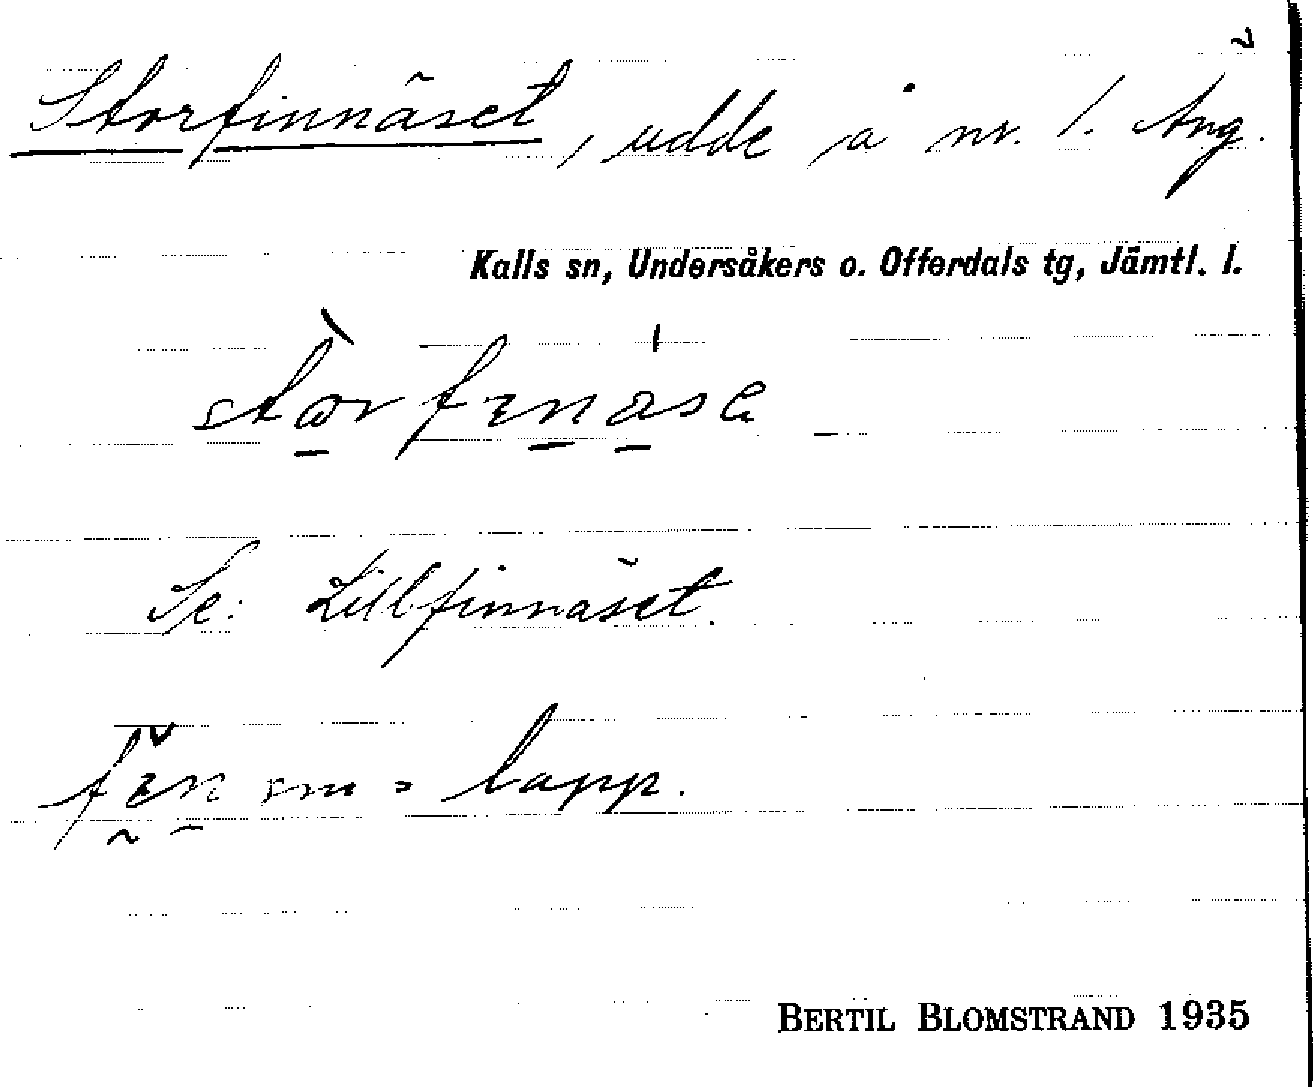 Storfinnäset, udde å nr. 1. Ång.
Kalls sn, Undersåkers o. Offerdals tg, Jämtl. l.
Se: Lillfinnäset.
sm = lapp.
BERTIL BLOMSTRAND 1935